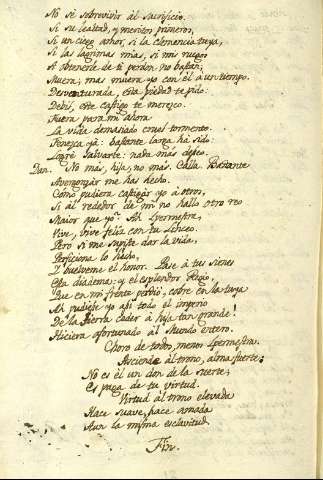 No sé sobrevivir al Sacrificio.
Si su lealtad, y meritos primeros,
Si un ciego amor, si la Clemencia tuya,
Si las lagrimas mias, si mis ruegos
A obtenerle de ti perdon no bastan,
Muera, mas muera yo con él à un tiempo.
Desventurada, esta piedad te pido:
Debil, este castigo te merezco.
Fuera para mi ahora
La vida demasiado cruel tormento.
Fenezca yá: bastante larga há sido:
Logré salvarte: nada más deseo.
Dan. No más, hija, no más. Calla. Bastante
Avergonzar me has hecho.
Como pudiera castigar yo à otros,
Si al rededor de mi no hallo otro reo
Maior que yo? Ah Ypermestra,
Vive, vive feliz con tu Linceo.
Pero si me supiste dar la vida,
Perficiona lo hecho,
Y buelveme el honor. Pase à tus sienes
Esta diadema: y el esplendor Regio,
Que en mi frente perdió, cobre en la tuya
Ah pudiese yo asi todo el imperio
De la tierra ceder à hija tan grande!
Hiciera afortunado al Mundo entero.
Choro de todos, menos Ypermestra.
Asciende al trono, alma fuerte;
No es él un don de la suerte;
Es paga de tu virtud.
Virtud al trono elevada
Hace suave, hace amada
Aun la misma esclavitud.
Fin.